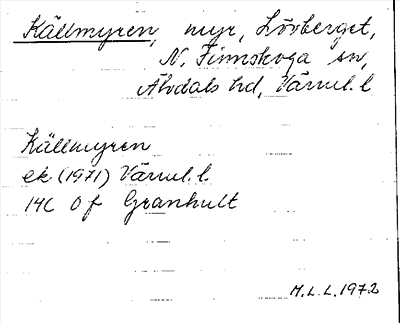 Källmyren, myr, Lövberget,
N. Finnskoga sn,
Älvdals hd, Värml. l
Källmyren
ek. (1971) Värml. l.
14C 0 f Granhult
M.L.L. 1972